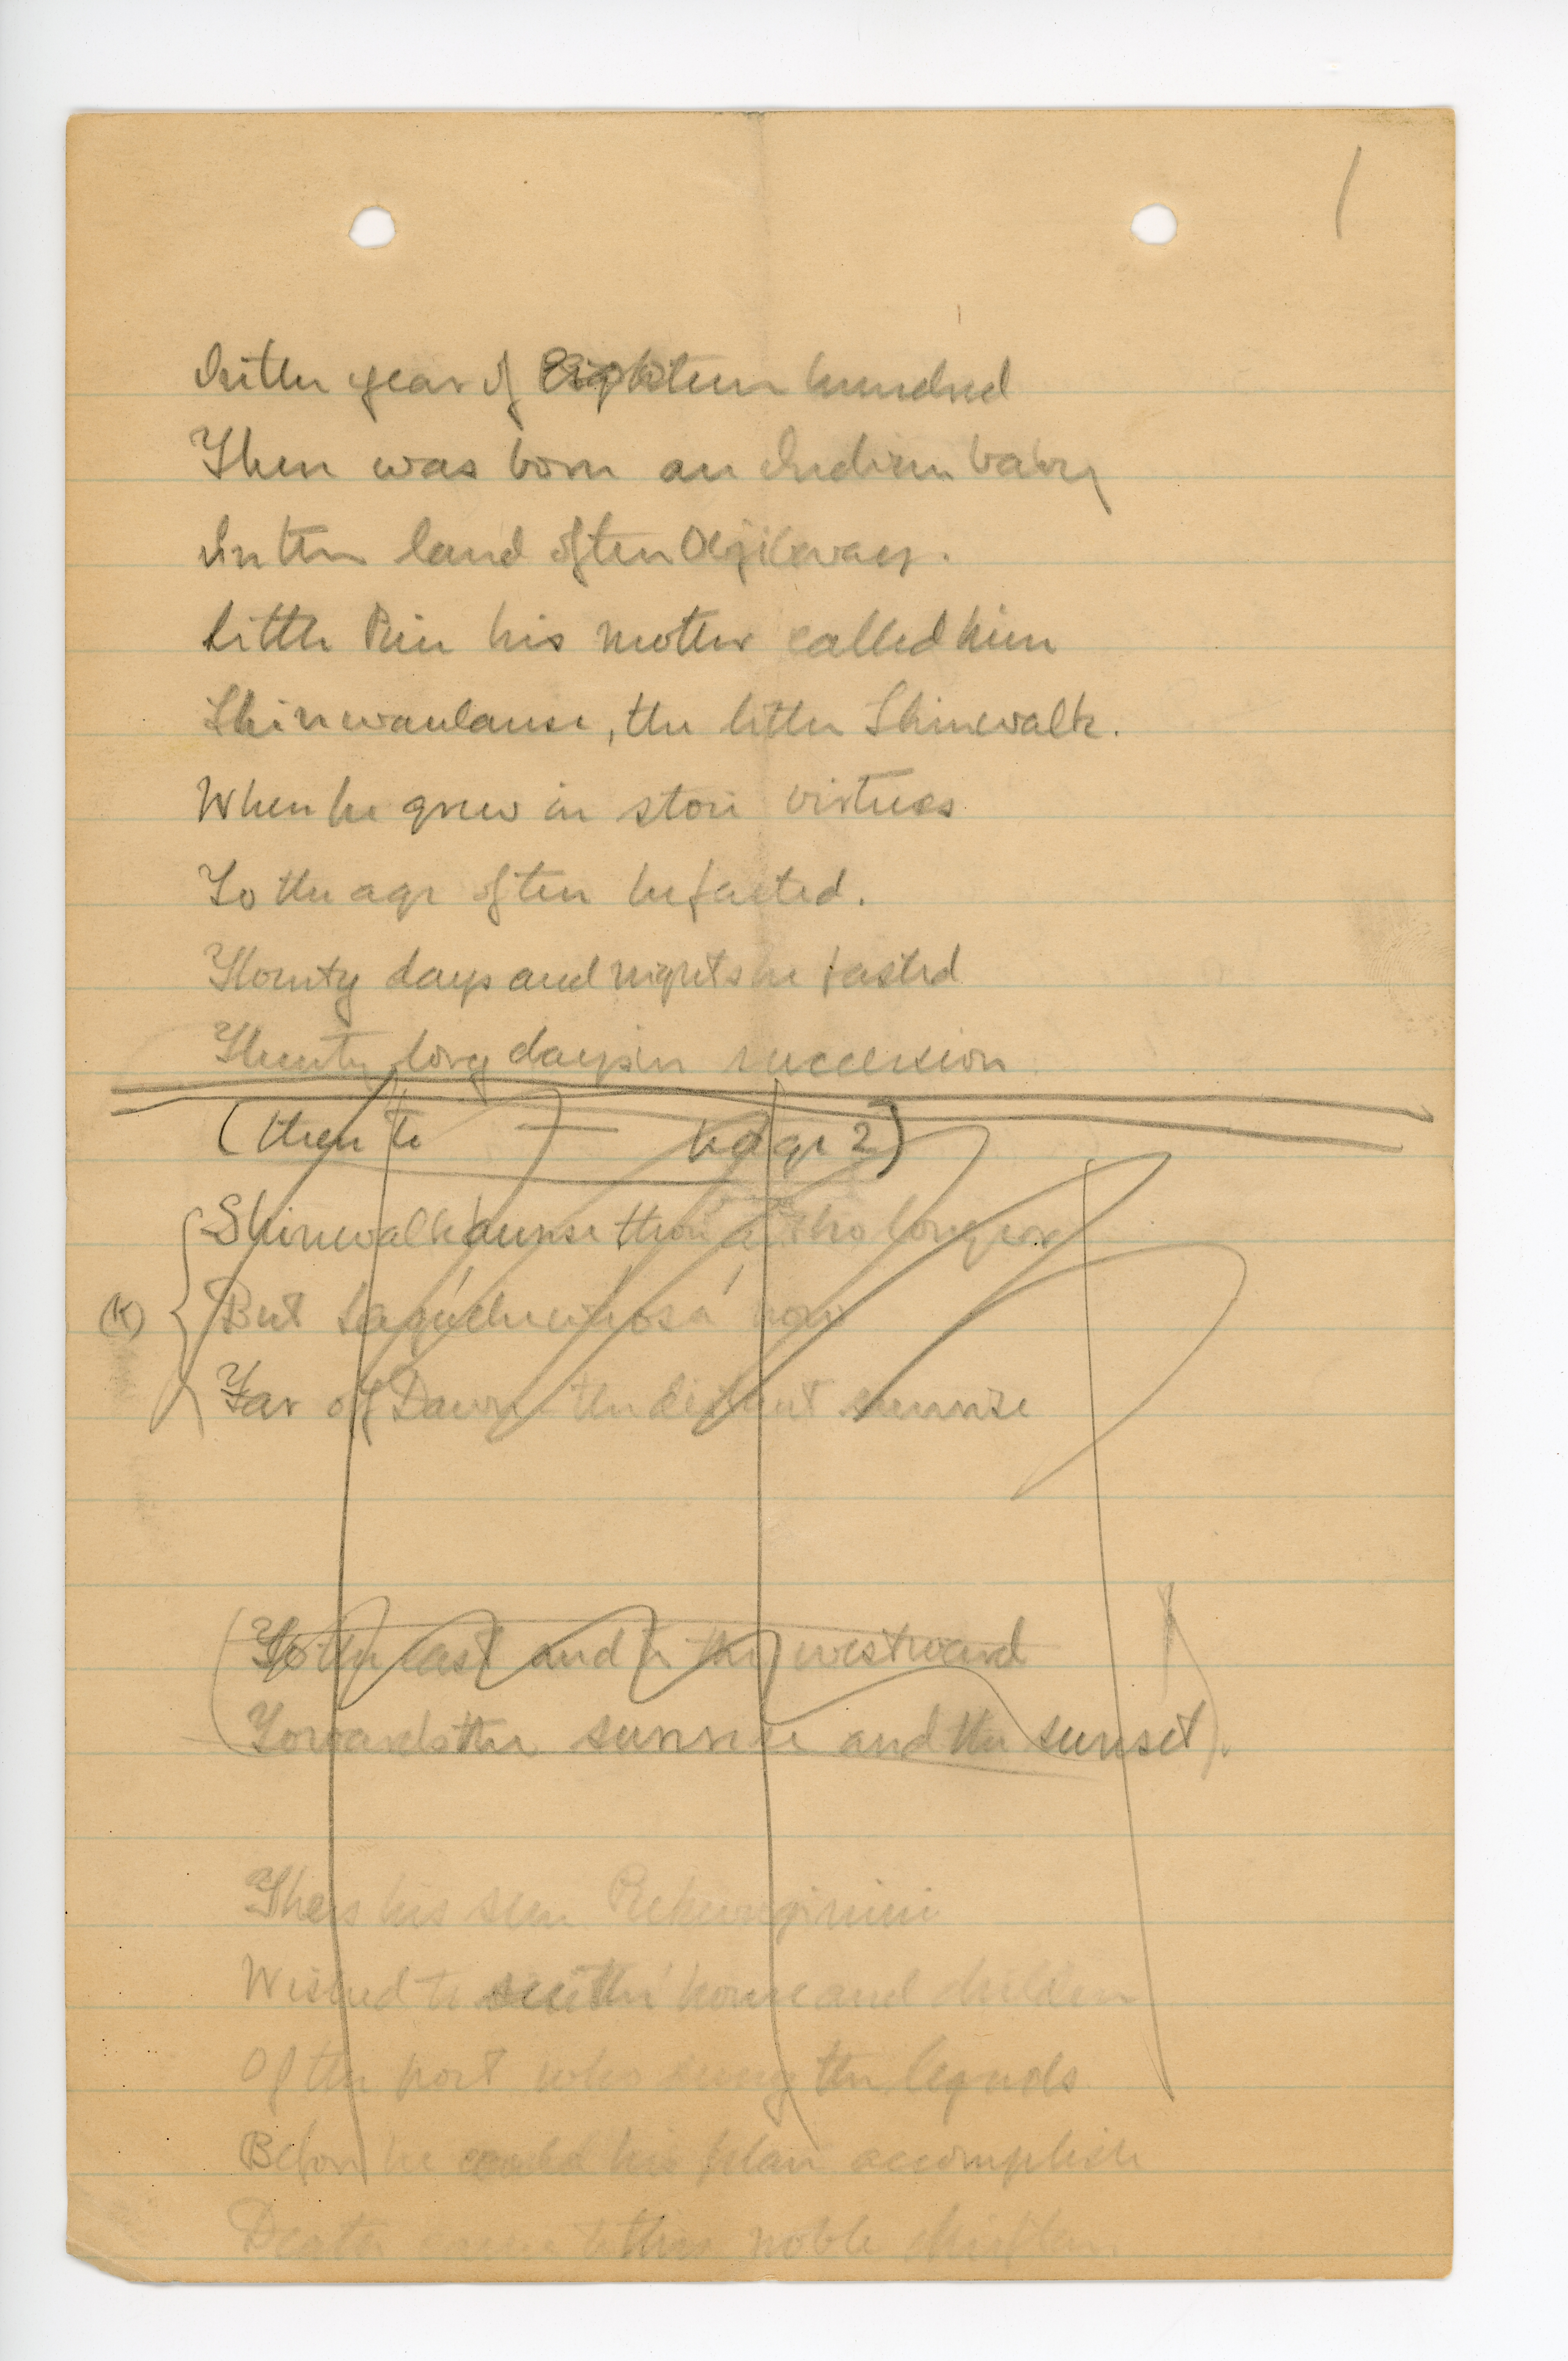 1
In the year of Eighteen hundred
There was born an Indian baby
In the land of the Ojibway.
Little Pine his mother called him
Shinwaulause, the little Shinwalk.
When he grew in store virtues
To the age of ten he fasted.
Twenty days and nights he fasted
Twenty long days in succession
(then to — page 2)
Shinwalkaunse then no longer
(K) But now
Far off Dawn the distant sunrise
(To the east and to the westward
Towards the sunrise and the sunset).
Then his son
Wished to see the house and children
Of the poet who sung the legends
Before he could his plan accomplish
Death came to this noble chieftan.